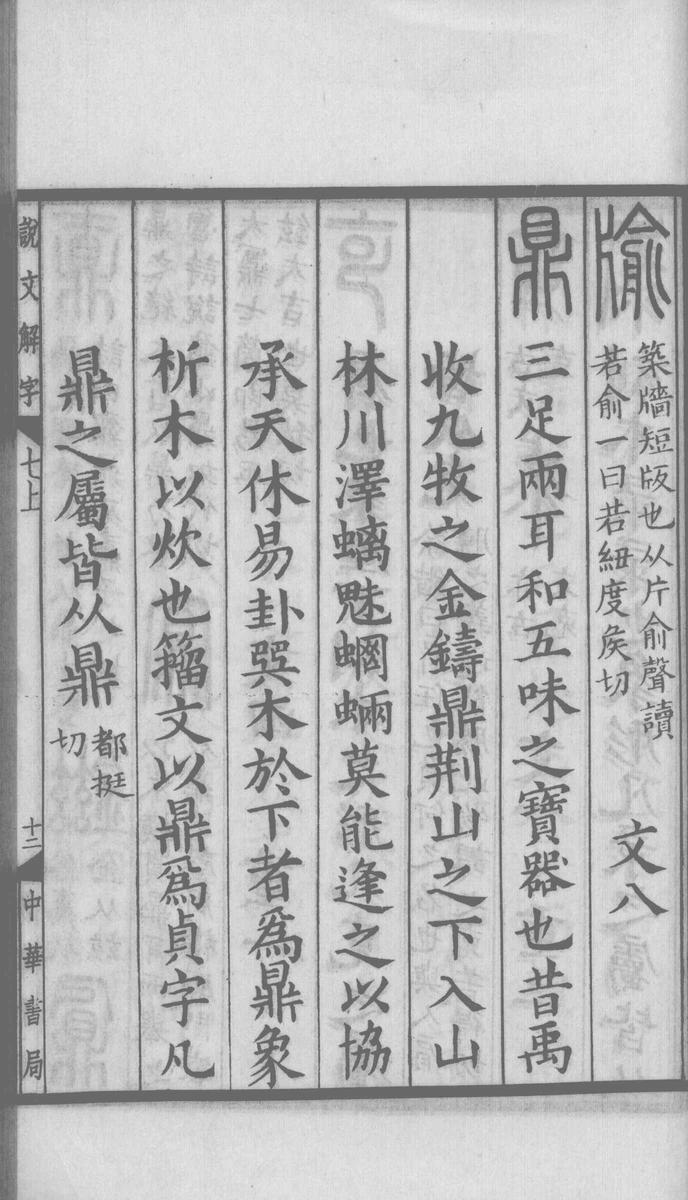 牏 築牆短版也从片俞聲讀
若俞一曰若紐度矦切 文八
鼎 三足兩耳和五味之寶器也昔禹
收九牧之金鑄鼎荆山之下入山
林川澤螭魅蝄蜽莫能逢之以協
承天休易卦巽木於下者爲鼎象
析木以炊也籒文以鼎爲貞字凡
鼎之屬皆从鼎 都挺
切
說文解字 七上 十二 中華書局